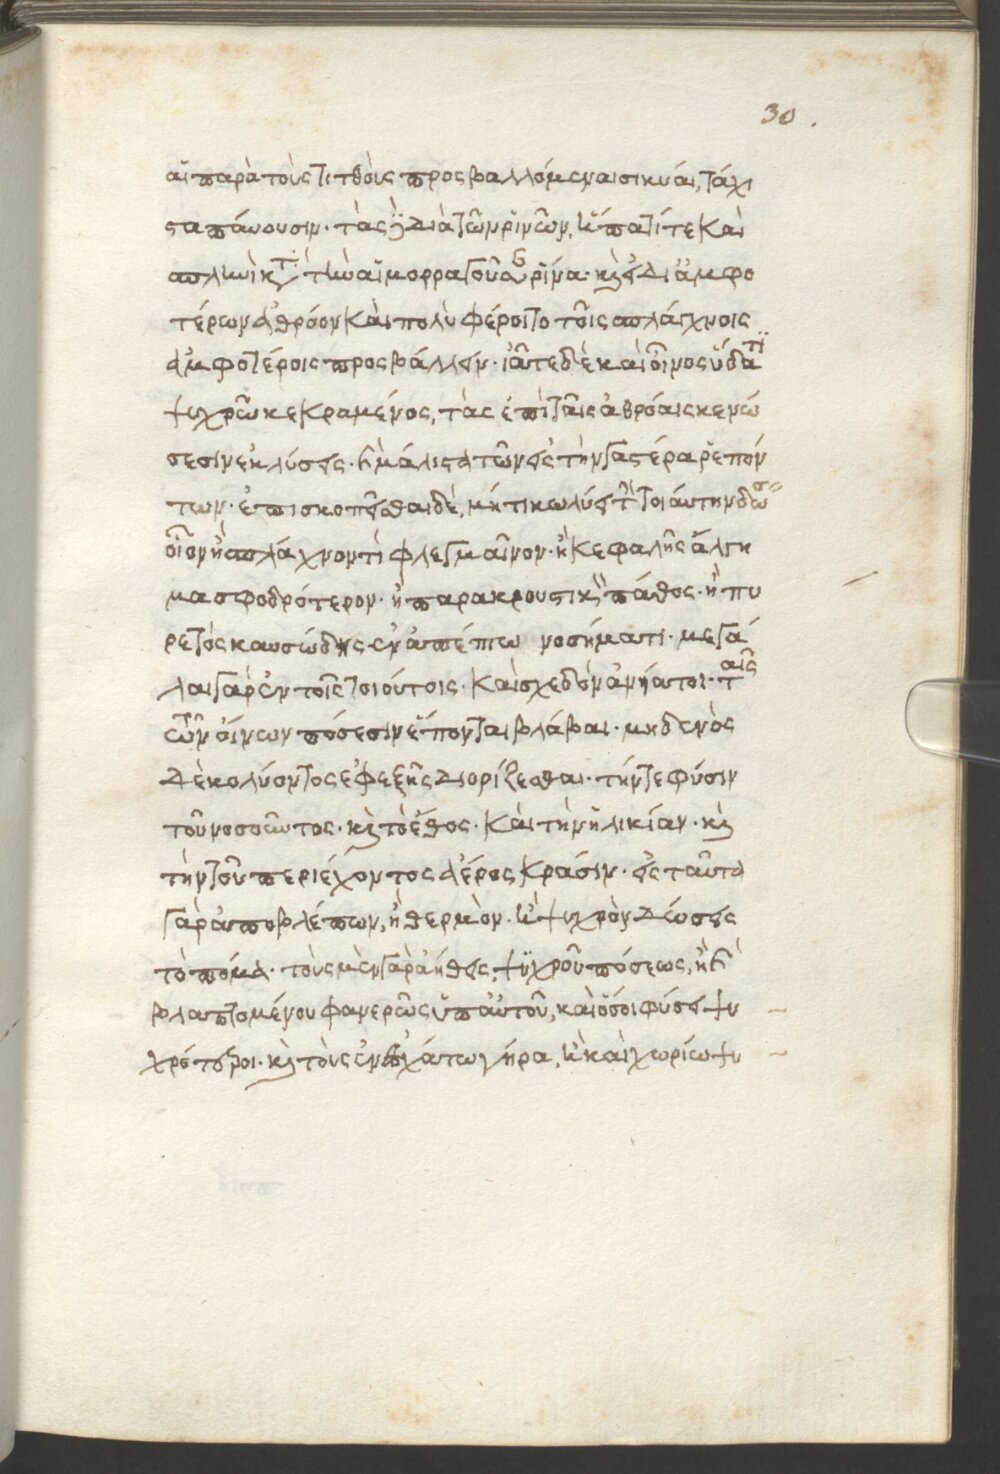 30.
αἱ παρὰ τοὺς τιτθοὺς προσβαλλόμεναι σικύαι, τάχι
στα παύουσιν. τὰς δὲ διὰ τῶν ῥινῶν, ἥπατί τε καὶ
σπληνὶ κατὰ τὴν αἱμορραγοῦσαν ῥῖνα. καὶ εἰ δι ἀμφο
τέρων ἀθρόον καὶ πολὺ φέροιτο τοῖς σπλάγχνοις
ἀμφοτέροις προσβάλλειν. ἰᾶτε δὲ καὶ οἶνος ὕδατι
ψυχρῶ κεκραμένος, τὰς ἐπὶ ταῖς ἀθρόαις κενώ
σεσιν ἐκλύσεις. καὶ μάλιστα τῶν εἰς τὴν γαστέρα ῥεπόν
των. ἐπισκοπεῖσθαι δὲ, μή τι κωλύει τὴν τοιαύτην δόσιν
οἷον ἢ σπλάχνον τὶ φλεγμαῖνον. ἢ κεφαλῆς ἄλγη
μα σφοδρότερον. ἢ παρακρουστικὸν πάθος. ἢ πυ
ρετὸς καυσώδης ἐν ἀπέπτω νοσήματι. μεγά
λαι γὰρ ἐν τοῖς τοιούτοις. καὶ σχεδὸν ἀνίατοι. ταῖς
τῶν οἴνων πόσεσιν ἕπονται βλάβαι. μηδενὸς
δὲ κολύοντος ἐφεξῆς διορίζεσθαι. τήν τε φύσιν
τοῦ νοσοῦντος. καὶ τὸ ἔθος. καὶ τὴν ἡλικίαν. καὶ
τὴν τοῦ περιέχοντος ἀέρος κράσιν. εἰς ταῦτα
γὰρ ἀποβλέπων, ἢ θερμὸν. ἢ ψυχρὸν δώσεις
τὸ πόμα. τοὺς μὲν γὰρ ἀήθεις, ψυχροῦ πόσεως, ἢ καὶ
βλαπτομένου φανερῶς ὑπ αὐτοῦ, καὶ ὅσοι φύσει ψυ
χρότεροι. καὶ τοὺς ἐν ἐσχάτω γήρα, ἢ καὶ χωρίω ψυ